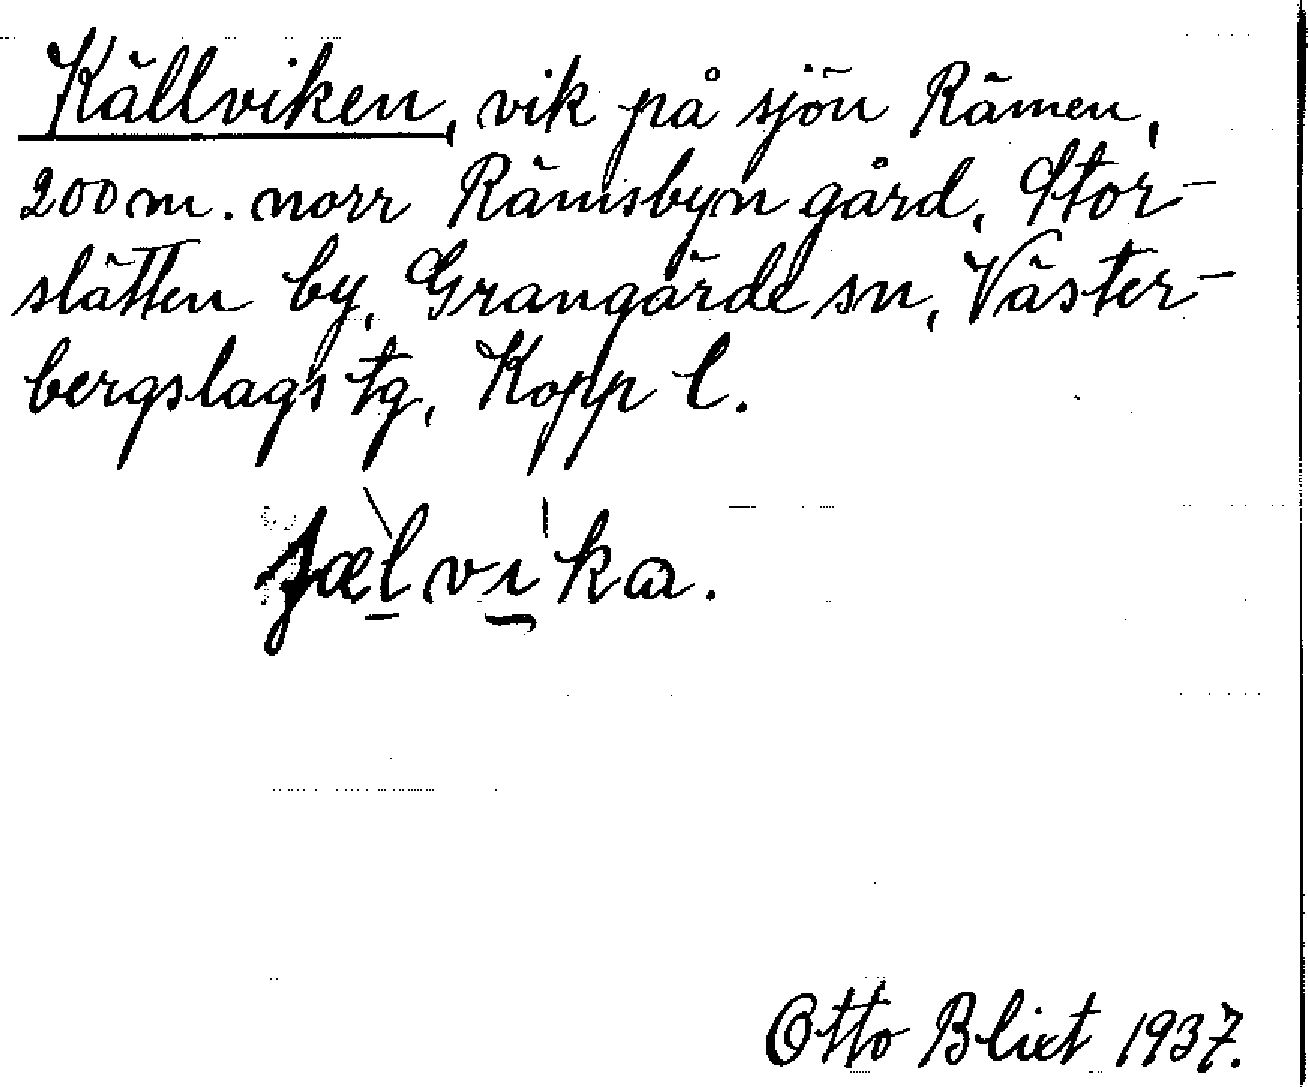 Källviken, vik på sjön Rämen,
200 m. norr Rämsbyn gård, Stor-
slätten by, Grangärde sn, Väster-
bergslags tg, Kopp l.
fæ̀l̠vı̠ˈka.
Otto Blixt 1937.